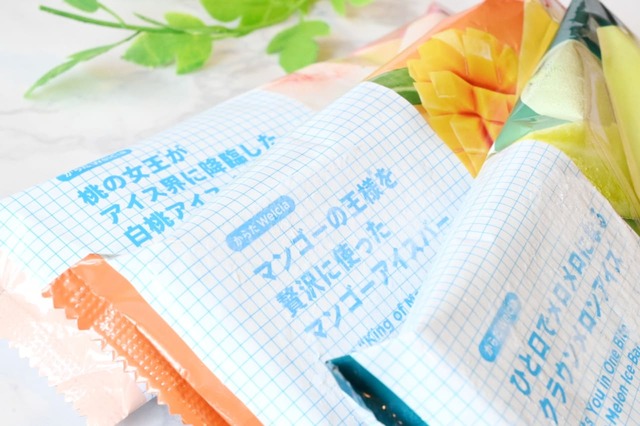 桃の女王が
アイス界に降臨した
白桃アイ
からだWelcia
マンゴーの王様を
贅沢に使った
マンゴーアイスバー
"King of
ひと口でメロメロになる
クラウンメロンアイス
s You in One Bi
Melon Ice Ba